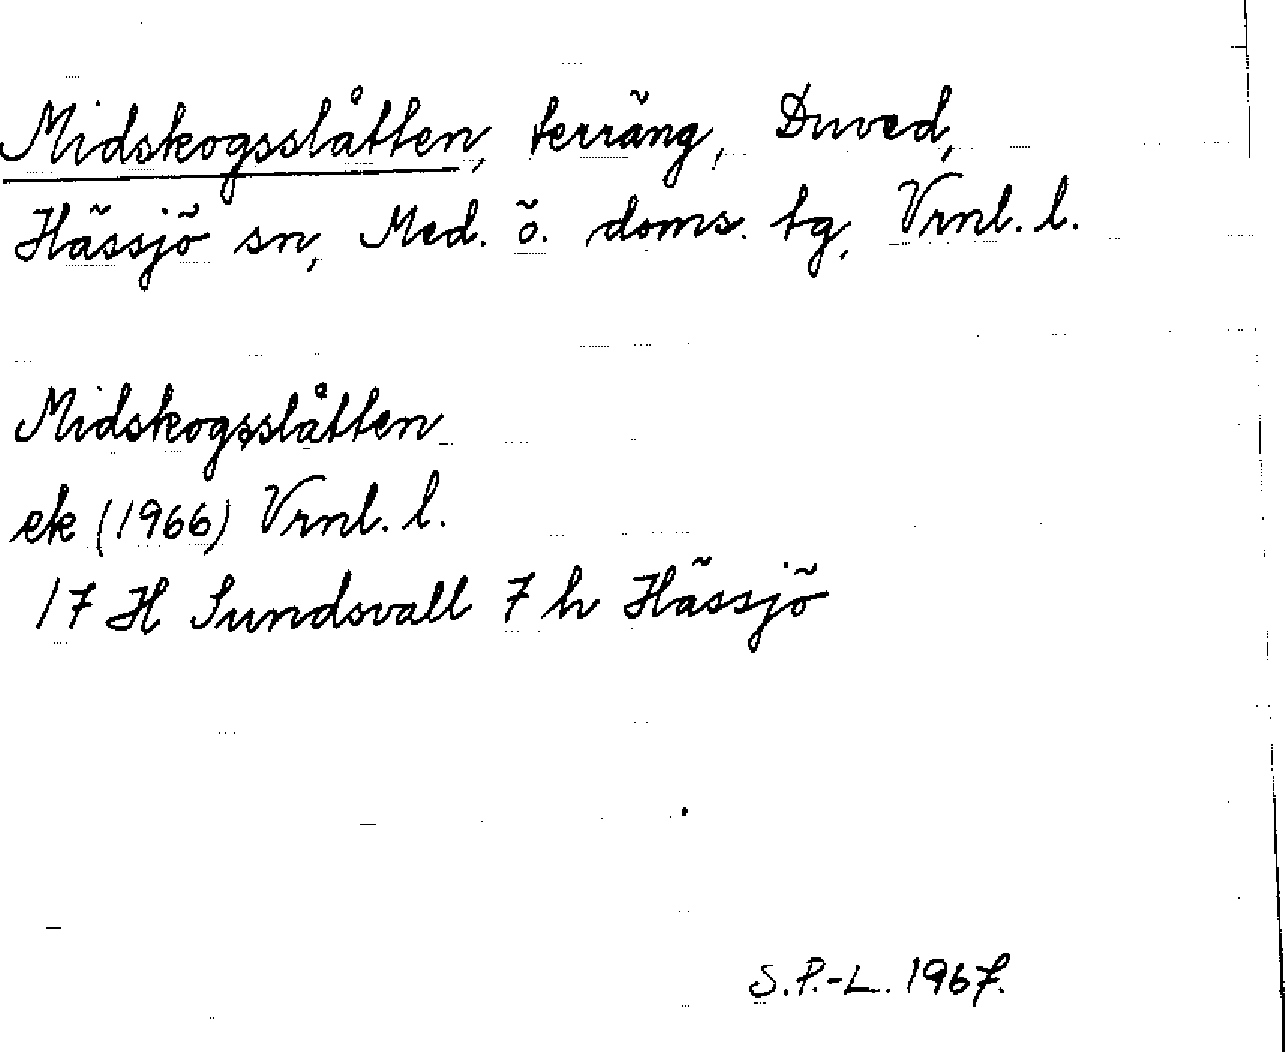 Midskogsslåtten, terräng, Duved,
Hässjö sn, Med. ö. doms. tg, Vrnl. l.
Midskogsslåtten
ek (1966) Vrnl. l.
17 H Sundsvall 7 h Hässjö
S.P.-L. 1967.